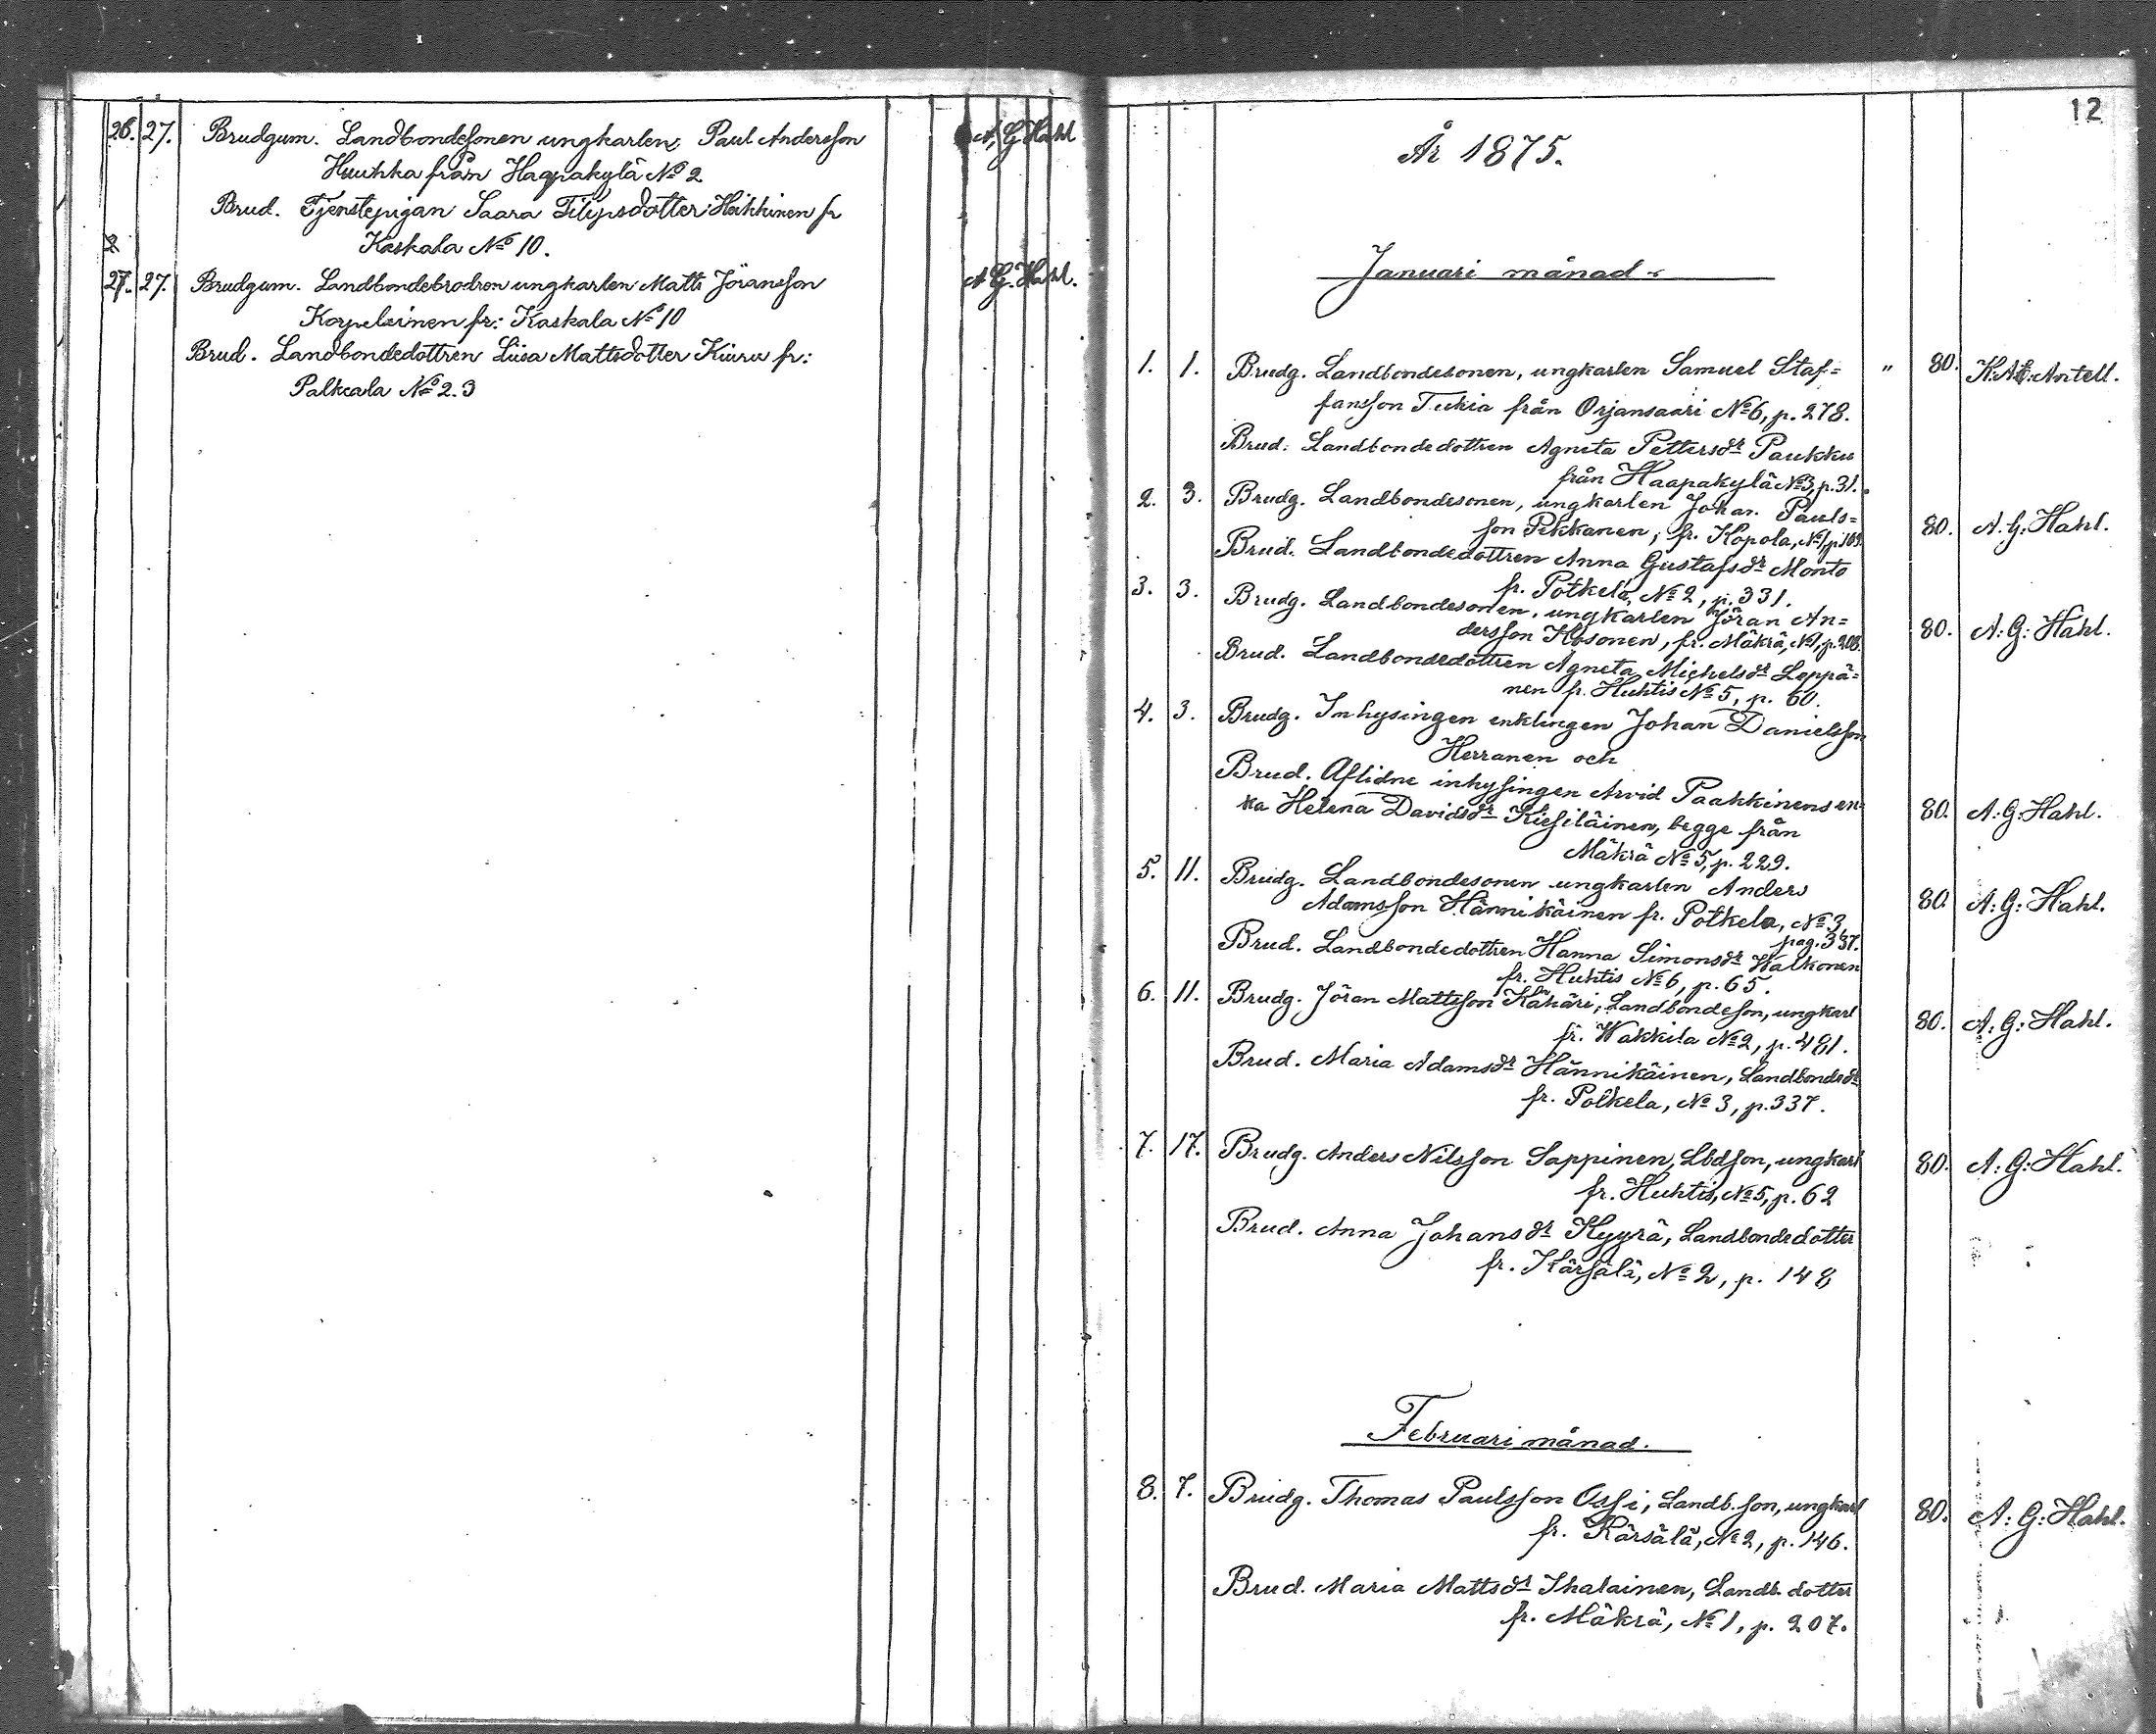 26. 27. Brudgum. Landbondesonen ungkarlen, Paul Andersson A. G. Hahl
Huuhka från Haapakylä No 2
Brud. Tjenstepigan Saara Filipsdotter Heikkinen fr
Kaskala No 10.
27. 27. Brudgum. Landbondebrodren ungkarlen Matts Jöransson A G. Hahl.
Korpelainen fr: Kaskala No 10
Brud. Landbondedottren Liisa Mattsdotter Kiuru fr:
Palkeala No 2.3
12
År 1875.
Januari månad.
1. 1. Brudg. Landbondesonen, ungkarlen Samuel Staf= " 80. K. Af. Antell.
fansson Tukia från Orjansaari No 6, p. 278.
Brud. Landbondedottren Agneta Pettersdr Paukku
från Haapakylä No 3, p. 31.
2. 3. Brudg. Landbondesonen, ungkarlen Johan Pauls= 80. A. G. Hahl.
son Pekkanen, fr. Kopola, No 1, p. 169.
Brud. Landbondedottren Anna Gustafsdr Monto
fr. Potkela, No 2, p. 331.
3. 3. Brudg. Landbondesonen, ungkarlen Jöran An= 80. A: G: Hahl.
dersson Kosonen, fr. Mäkrä, No 1, p. 208.
Brud. Landbondedottren Agneta Michelsdr Leppä=
nen fr. Huhtis No 5, p. 60.
4. 3. Brudg. Inhysingen enklingen Johan Danielsson
Herranen och
Brud. Aflidne inhysingen Arvid Paakkinens en=
ka Helena Davidsdr Kiesiläinen, begge från 80. A: G: Hahl.
Mäkrä No 5, p. 229.
5. 11. Brudg. Landbondesonen ungkarlen Anders 80. A: G: Hahl.
Adamsson Hännikäinen fr. Potkela, No 3,
pag. 337.
Brud. Landbondedottren Hanna Simonsdr Walkonen
fr. Huhtis No 6, p. 65.
6. 11. Brudg. Jöran Mattsson Kähäri, Landbondeson, ungkarl 80. A: G: Hahl.
fr. Wakkila No 2, p. 481.
Brud. Maria Adamsdr Hännikäinen, Landbondedr
fr. Potkela, No 3, p. 337.
7. 17. Brudg. Anders Nilsson Sappinen, Lbdson, ungkarl 80. A: G: Hahl.
fr. Huhtis, No 5, p. 62
Brud. Anna Johansdr Kyyrä, Landbondedotter
fr. Kärsälä, No 2, p. 148
Februari månad.
8. 7. Brudg. Thomas Paulsson Ossi, Landb. son, ungkarl 80. A: G: Hahl.
fr. Kärsälä, No 2, p. 146.
Brud. Maria Mattsdr Ihalainen, Landb. dotter
fr. Mäkrä, No 1, p. 207.